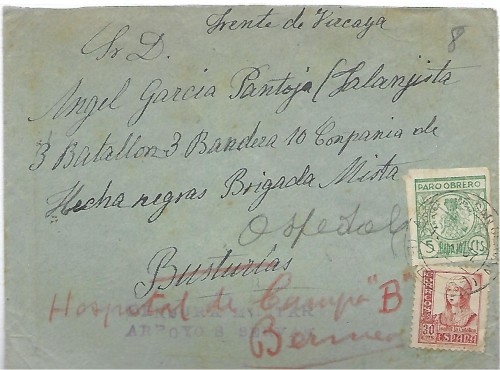 Frente de Vizcaya
8
Sr D.
Angel Garcia Pantoja (Falanjista
3 Batallon 3 Bandera 10 Conpania de
flecha negras Brigada Mista
Ospital
Busturias
Hospital de Campo "B"
Bermeo
MILITAR
ARROYO S SERVAN
PARO OBRERO
5 CTS
BADAJOZ
30
ESPAÑA